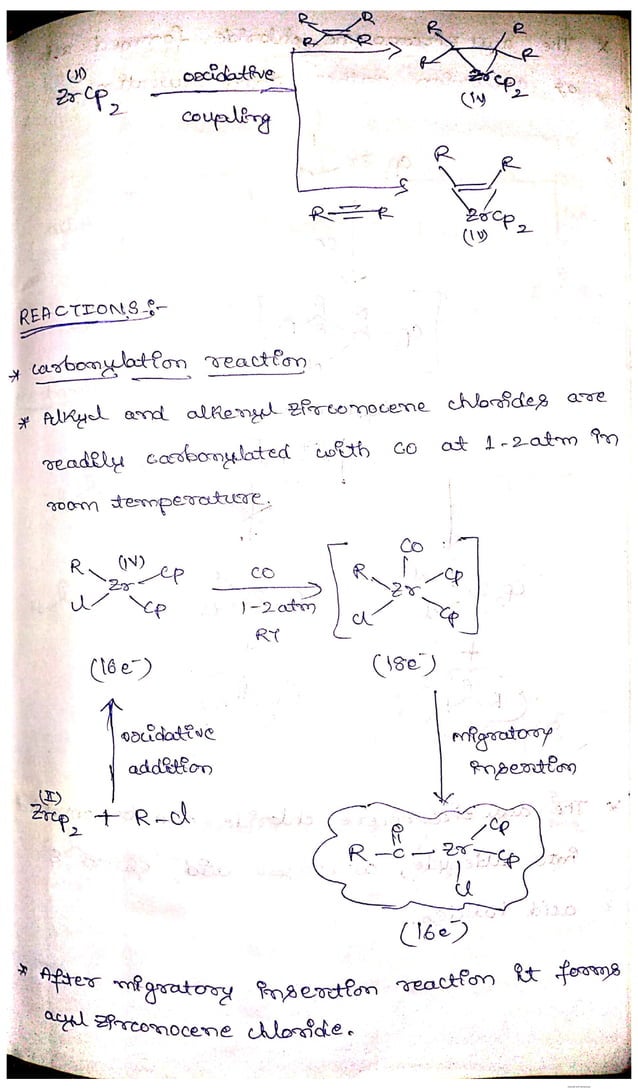 R R
R R
R R
R R
ZrCp2
(IV)
(II)
ZrCp2
oxidative
coupling
R R
R≡R
ZrCp2
(IV)
REACTIONS:-
* carbonylation reaction
* Alkyl and alkenyl zirconocene chlorides are
readily carbonylated with CO at 1-2atm in
room temperature.
R (IV) Cp
Zr
Cl Cp
CO
1-2atm
RT
CO
R Cp
Zr
Cl Cp
(16e⁻)
(18e⁻)
oxidative
addition
migratory
insertion
(II)
ZrCp2 + R-Cl
O
R-C-Zr-Cp
Cp
Cl
(16e⁻)
* After migratory insertion reaction it forms
acyl zirconocene chloride.